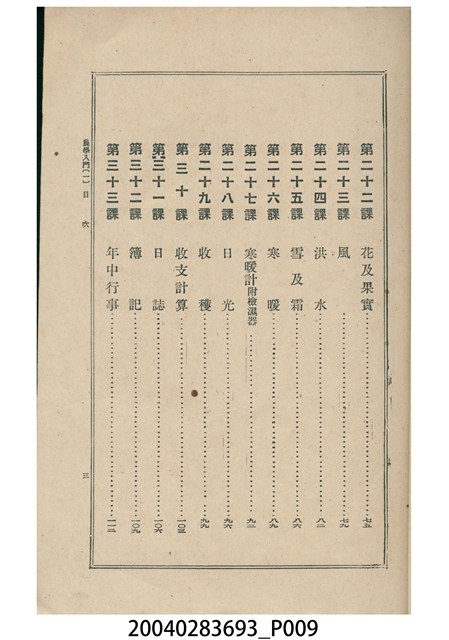 第二十二課 花及果實 七五
第二十三課 風 七九
第二十四課 洪水 八二
第二十五課 雪及霜 八六
第二十六課 寒暖 八九
第二十七課 寒暖計附檢濕器 九二
第二十八課 日光 九六
第二十九課 收穫 九九
第三十課 收支計算 一〇三
第三十一課 日誌 一〇六
第三十二課 簿記 一〇九
第三十三課 年中行事 一一二
農學入門(一) 目次 三
20040283693_P009